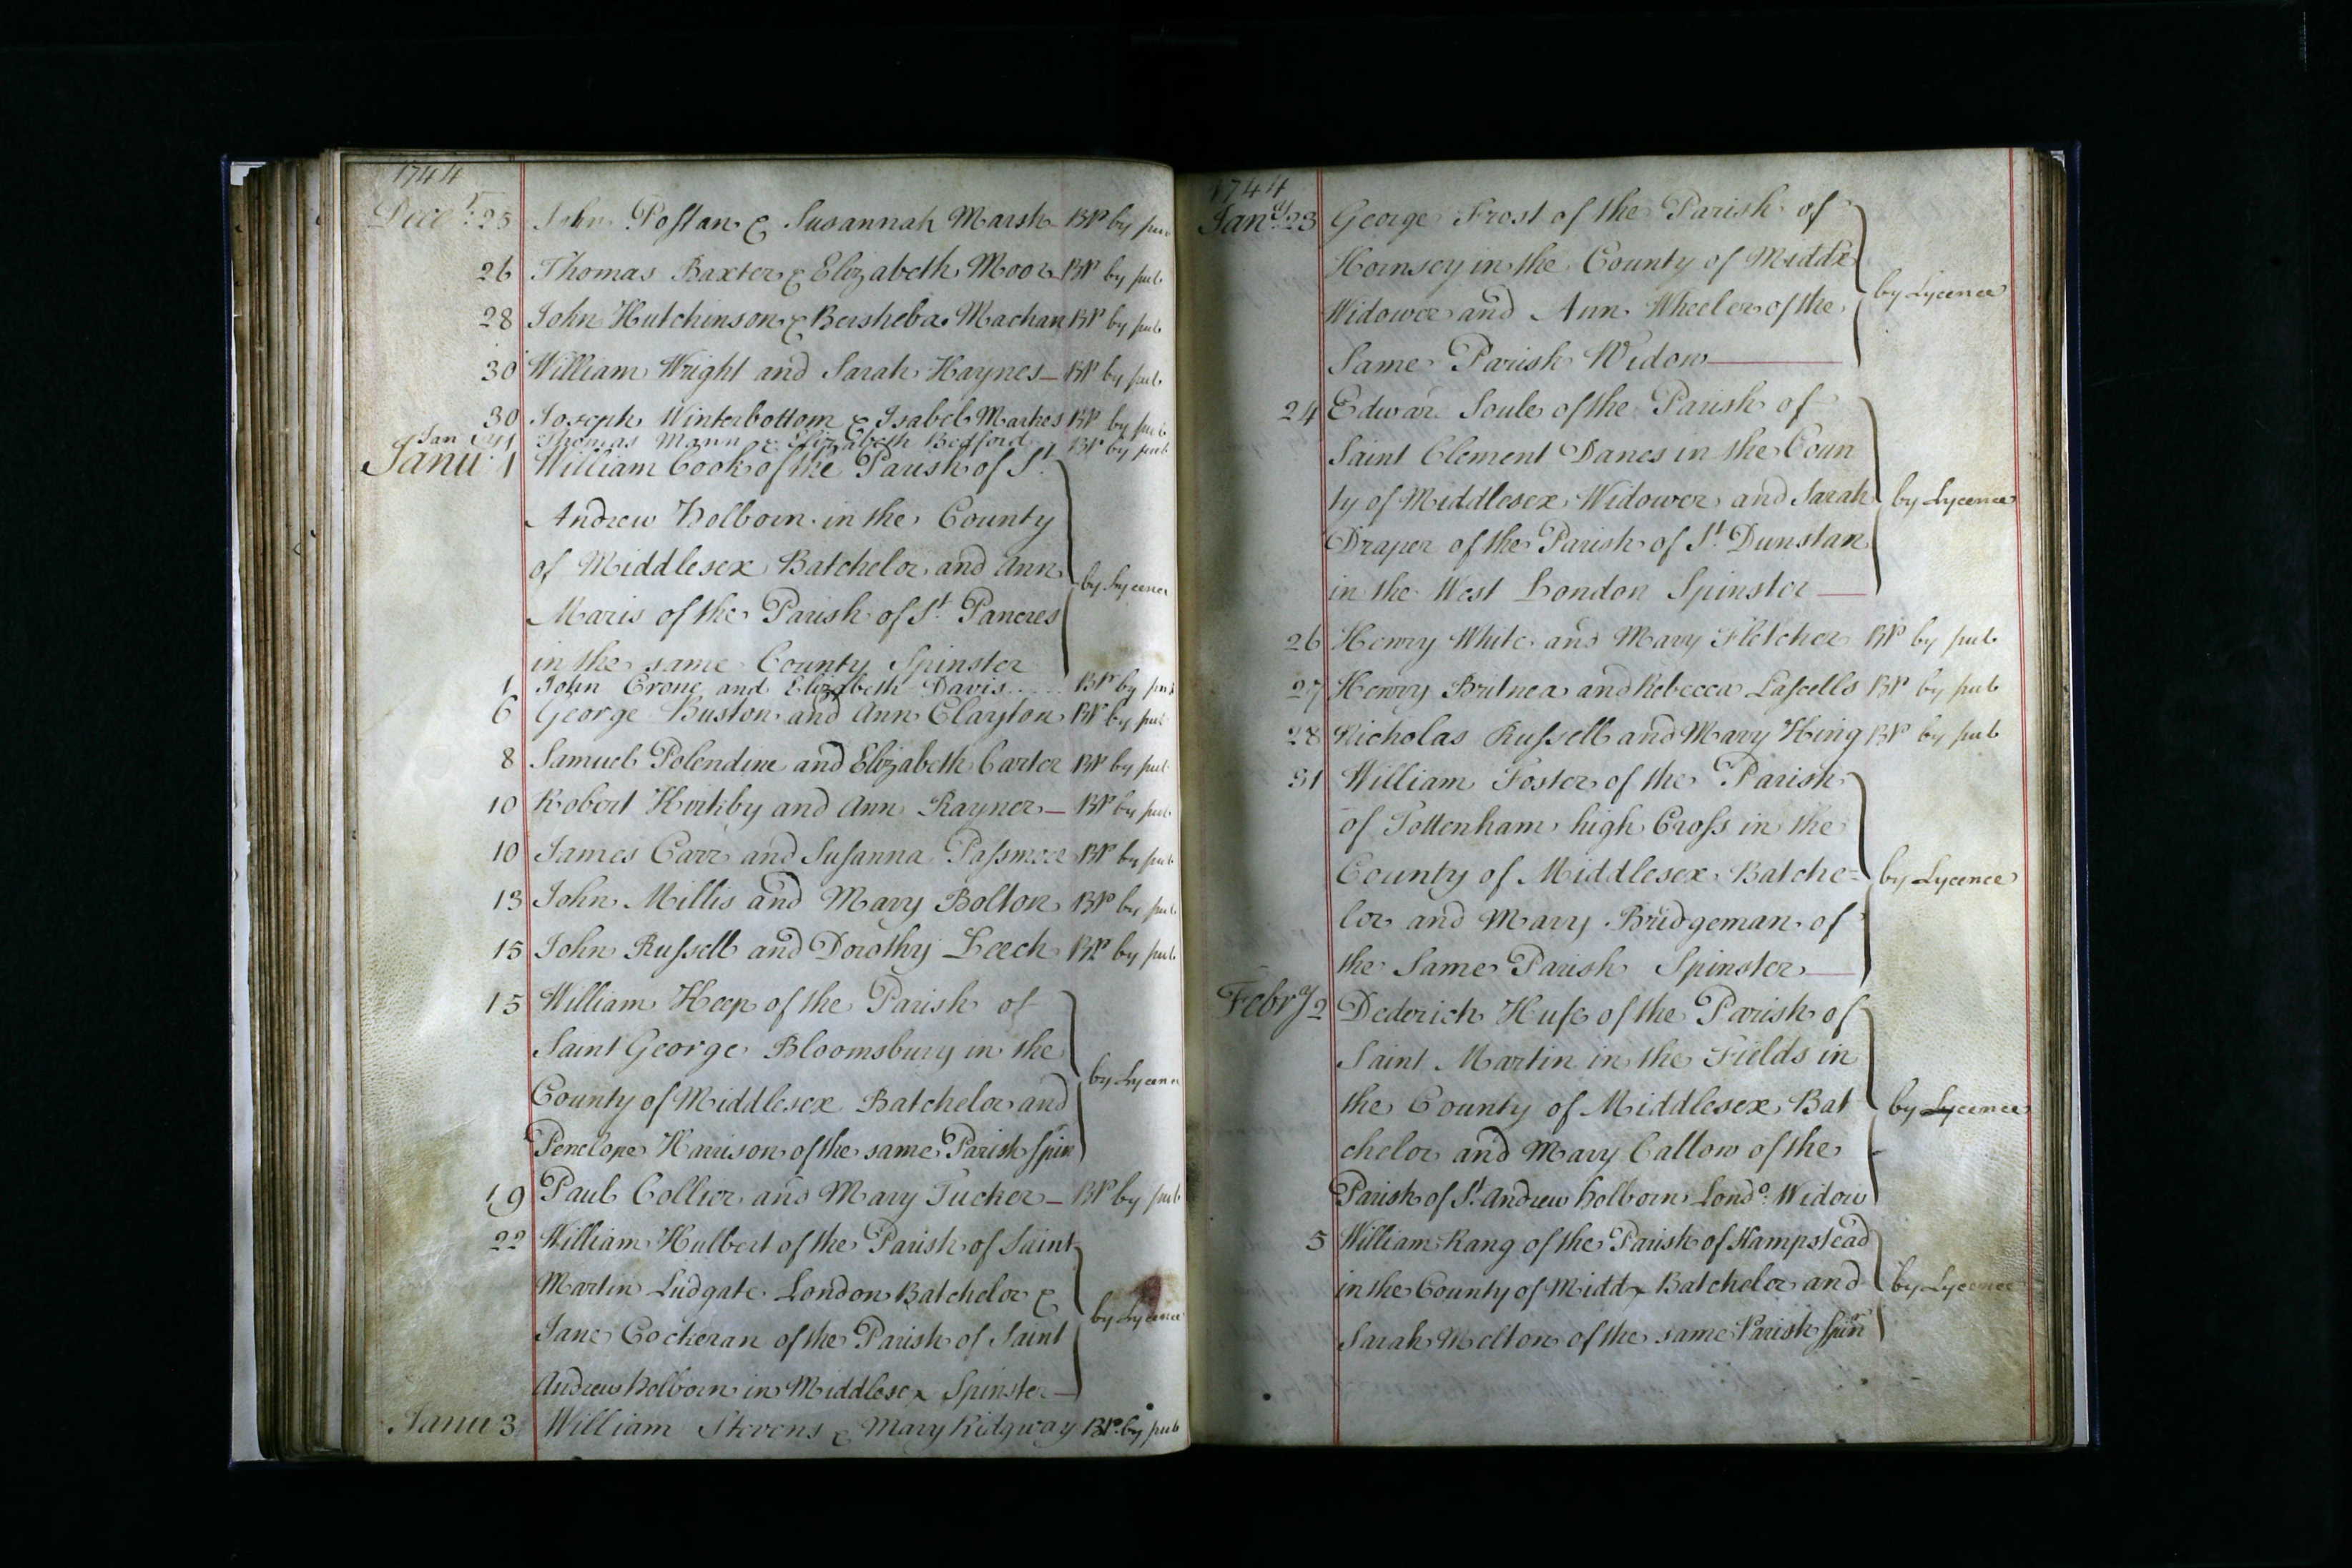 1744
Decer. 25 John Postan & Susannah Marsh BP by pub
26 Thomas Baxter & Elizabeth Moor BP by pub
28 John Hutchinson & Bersheba Machan BP by pub
30 William Wright and Sarah Haynes BP by pub
30 Joseph Winterbottom & Isabel Markes BP by pub
Jan 1 Thomas Mann & Elizabeth Bedford BP by pub
Janu 1 William Cook of the Parish of St.
Andrew Holborn in the County
of Middlesex Batchelor and Ann
by Lycence
Maris of the Parish of St. Pancres
in the same County Spinster
1 John Crone and Elizabeth Davis BP by pub
6 George Buston and Ann Clayton BP by pub
8 Samuel Polendine and Elizabeth Carter BP by pub
10 Robert Kirkby and Ann Rayner BP by pub
10 James Carr and Susanna Passmore BP by pub
13 John Millis and Mary Bolton BP by pub
15 John Russell and Dorothy Leech BP by pub
15 William Keep of the Parish of
Saint George Bloomsbury in the
by Lycence
County of Middlesex Batchelor and
Penelope Harrison of the same Parish Spin
19 Paul Collier and Mary Tucker BP by pub
22 William Hulbert of the Parish of Saint
Martin Ludgate London Batchelor &
by Lycence
Jane Cockeran of the Parish of Saint
Andrew Holborn in Middlesex Spinster
Janu 3 William Stevens & Mary Ridgway BP by pub
1744
Jany 23 George Frost of the Parish of
Hornsey in the County of Middx
by Lycence
Widower and Ann Wheeler of the
Same Parish Widow
24 Edwar Soule of the Parish of
Saint Clement Danes in the Coun
ty of Middlesex Widower and Sarah by Lycence
Draper of the Parish of St. Dunstan
in the West London Spinster
26 Henry White and Mary Fletcher BP by pub
27 Henry Britnea and Rebecca Lascells BP by pub
28 Nicholas Russell and Mary King BP by pub
31 William Foster of the Parish
of Tottenham high Cross in the
County of Middlesex Batche- by Lycence
lor and Mary Bridgeman of
the Same Parish Spinster
Febry 2 Dederich Huse of the Parish of
Saint Martin in the Fields in
the County of Middlesex Bat by Lycence
chelor and Mary Callow of the
Parish of St. Andrew holborn Londo. Widow
5 William Rang of the Parish of Hampstead
in the County of Middx Batchelor and by Lycence
Sarah Melton of the same Parish Spin